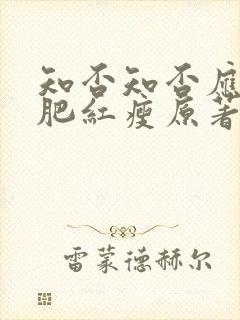 知否知否應
肥紅瘦原著
雷蒙德赫尔